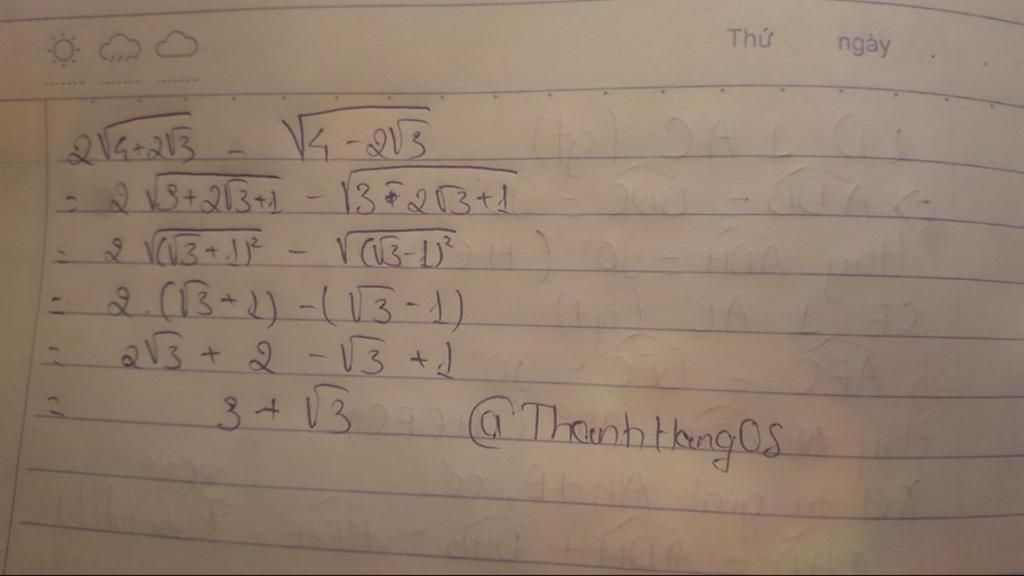 Thứ ngày
2√(4+2√3) - √(4-2√3)
= 2√(3+2√3+1) - √(3-2√3+1)
= 2√((√3+1)²) - √((√3-1)²)
= 2.(√3+1) - (√3-1)
= 2√3 + 2 - √3 + 1
= 3 + √3 @ThanhHangOS